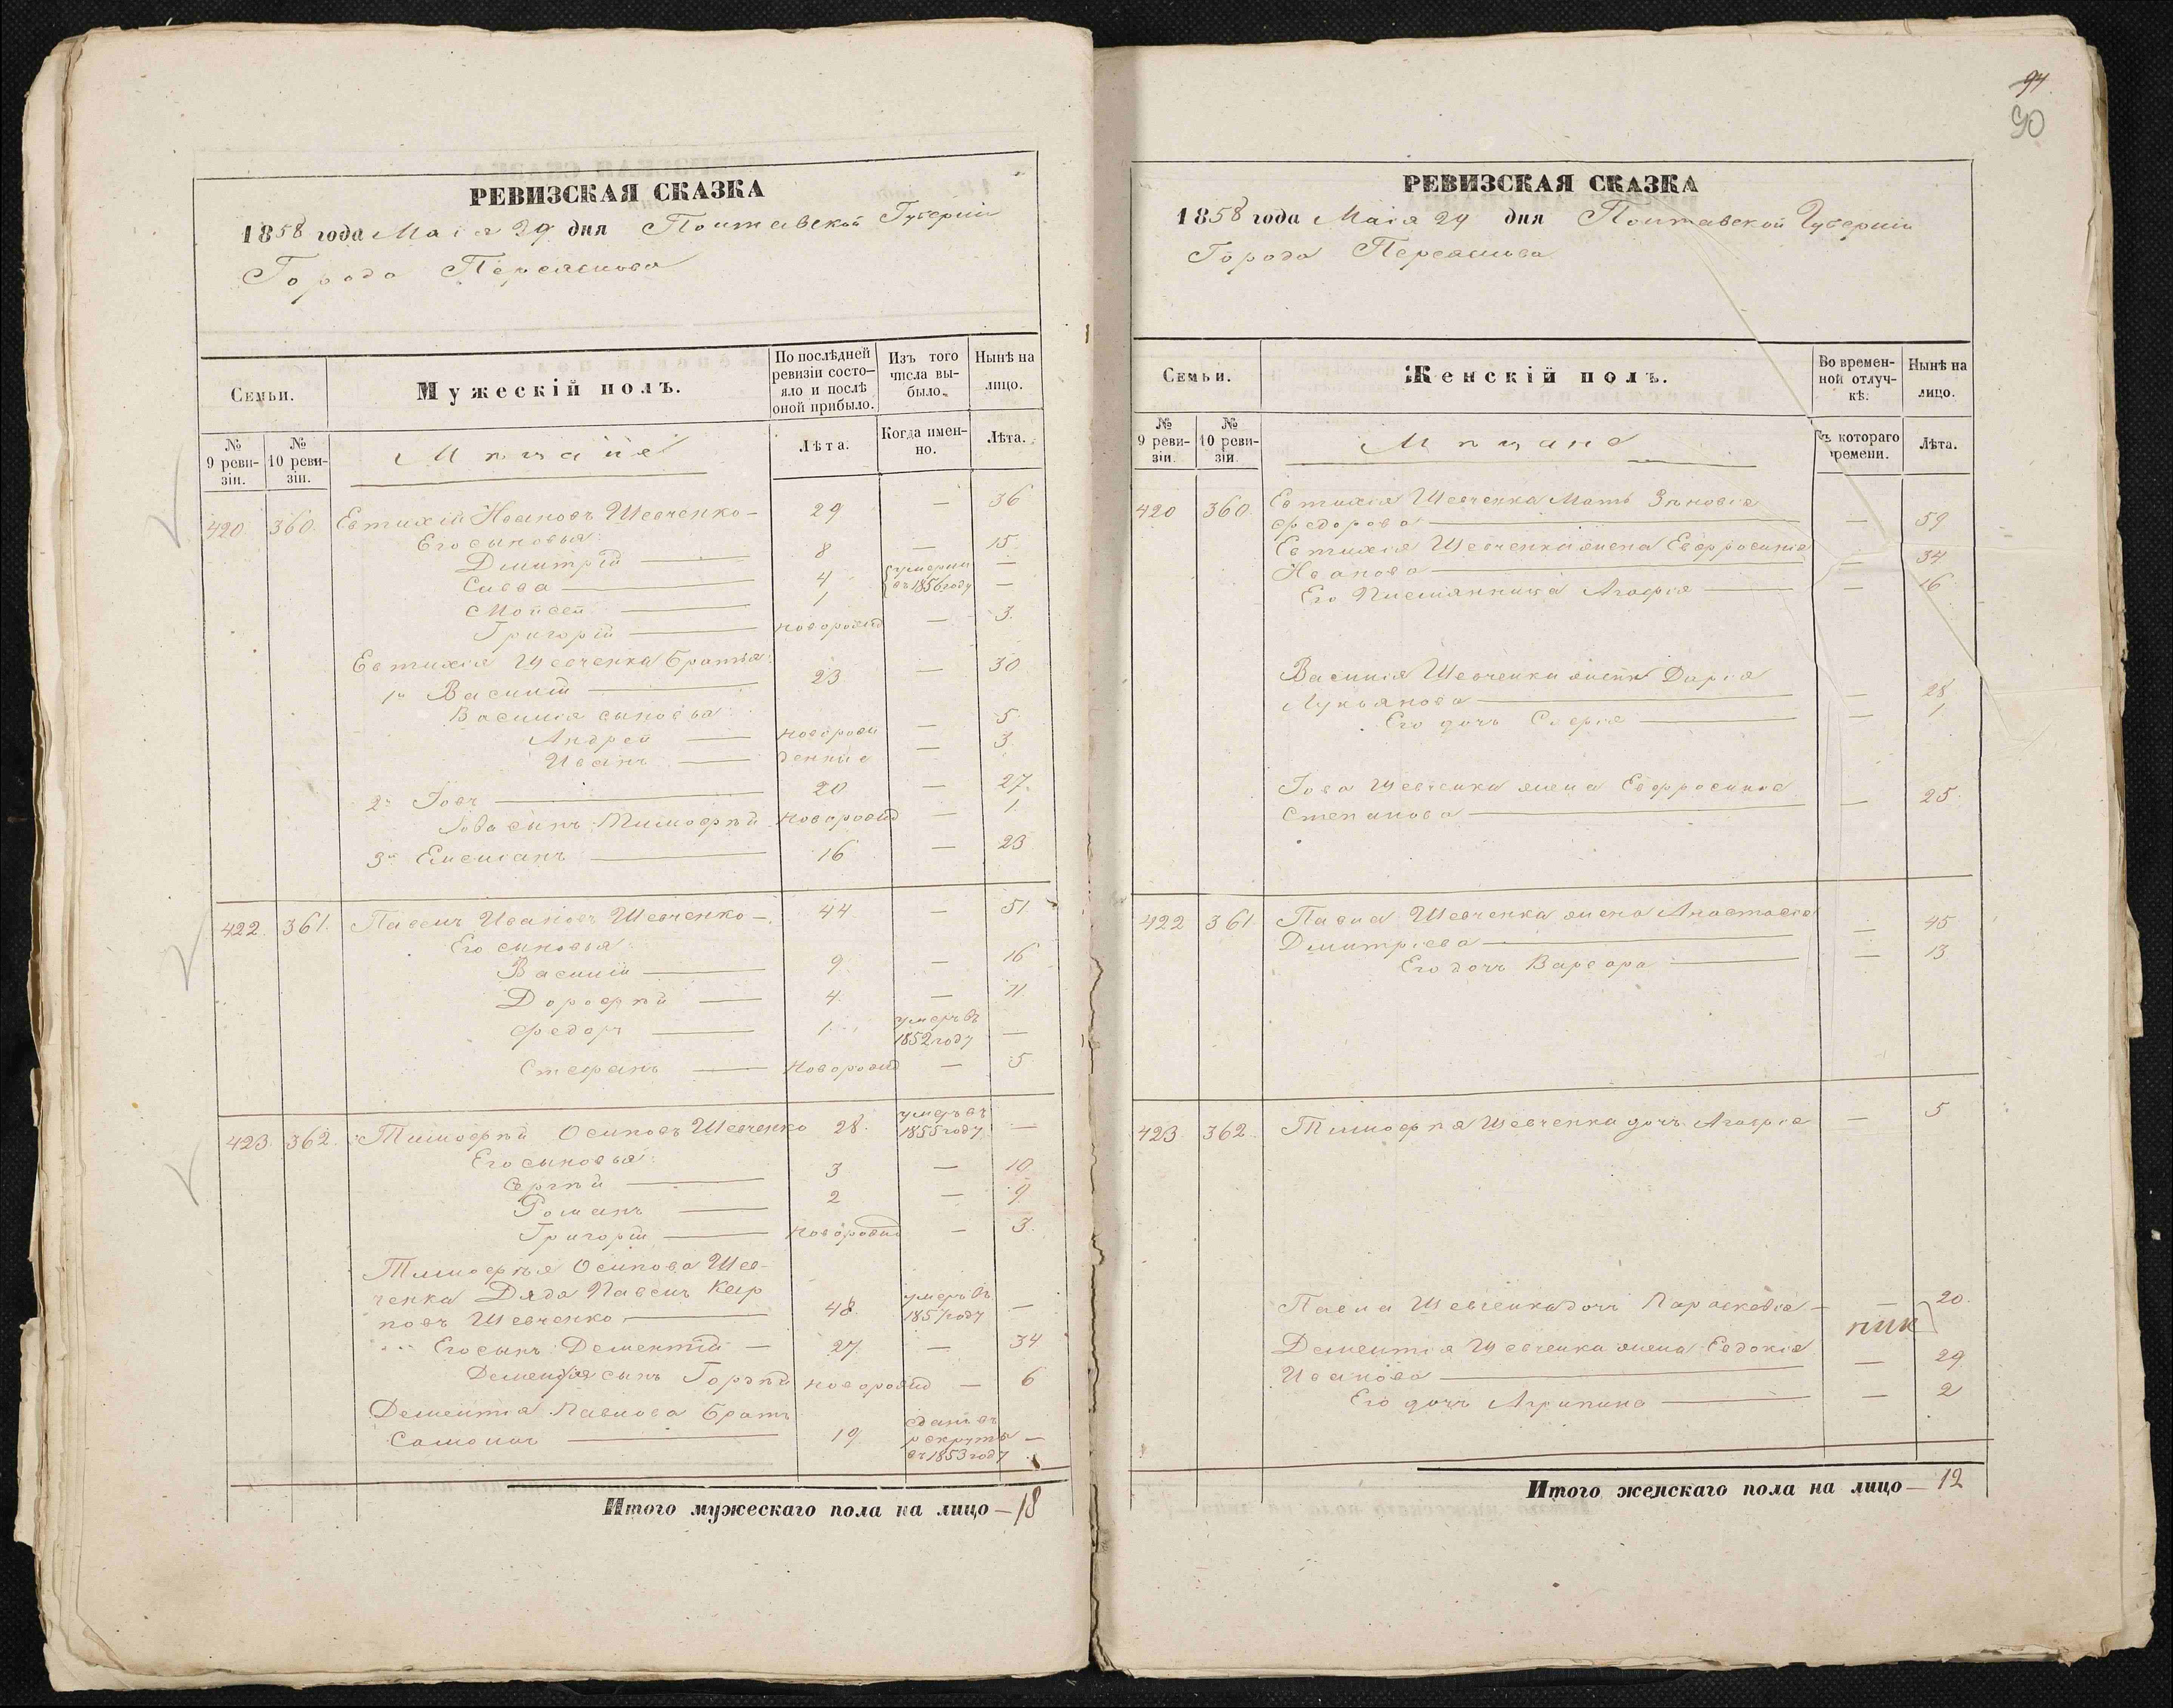 РЕВИЗСКАЯ СКАЗКА
1858 года Маія 29 дня Полтавской Губерніи
Города Переяслова
Семьи.
Мужескій полъ.
По послѣдней ревизіи состо-
яло и послѣ
оной прибыло.
Изъ того
числа вы-
было.
Нынѣ на
лицо.
№
9 реви-
зіи.
№
10 реви-
зіи.
Мѣщане
Лѣта.
Когда имен-
но.
Лѣта.
420 360. Евтихій Ивановъ Шевченко — 29 — 36
Его сыновья:
Дмитрій — 8 — 15
Савва — 4 умерли —
Моисей — 1 въ 1856 году —
Григорій — новорожд — 3.
Евтихія Шевченка братья:
1й Василій — 23 — 30
Василія сыновья:
Андрей — новорож — 5
Иванъ — денные — 3.
2й Іовъ — 20 — 27.
Іова сынъ Тимофѣй новорожд — 1.
3й Емельянъ — 16 — 23
422. 361. Павелъ Ивановъ Шевченко — 44 — 51
Его сыновья:
Василій — 9 — 16
Дорофѣй — 4. — 11.
Федоръ — 1 умеръ въ
1852 году —
Стефанъ — новорожд — 5
423. 362. Тимофѣй Осиповъ Шевченко 28. умеръ въ
1855 году —
Его сыновья:
Сергѣй — 3 — 10
Романъ — 2 — 9.
Григорій — новорожд — 3.
Тимофѣя Осипова Шев-
ченка Дядя Павелъ Кир
повъ Шевченко — 48. умеръ въ
1851 году —
Его сынъ Дементій — 27. — 34
Дементія сынъ Гордѣй новорожд — 6
Дементія Павлова братъ
Самоилъ — 19 сданъ въ
рекруты —
въ 1853 году
Итого мужескаго пола на лицо — 18
94
90
РЕВИЗСКАЯ СКАЗКА
1858 года Маія 29 дня Полтавской Губерніи
Города Переяслова
Семьи.
Женскій полъ.
Во времен-
ной отлуч-
кѣ.
Нынѣ на
лицо.
№
9 реви-
зіи.
№
10 реви-
зіи.
Мѣщане
Съ котораго
времени.
Лѣта.
420 360. Евтихія Шевченка Мать Зѣновія
Федорова — — 59
Евтихія Шевченка жена Евфросинія
Иванова — — 34
Его Племянница Агафія — — 16
Василія Шевченка жена Дарія
Лукьянова — — 28
Его дочь Софія — — 1
Іова Шевченка жена Евфросинія
Степанова — — 25.
422 361. Павла Шевченка жена Анастасія
Дмитріева — — 45
Его дочь Варвара — — 13
423 362. Тимофѣя Шевченка дочь Агафія — 5
Павла Шевченка дочь Параскевія — — 20.
Дементія Шевченка жена Евдокія
Иванова — — 29
Его дочь Агрипина — — 2
Итого женскаго пола на лицо — 12